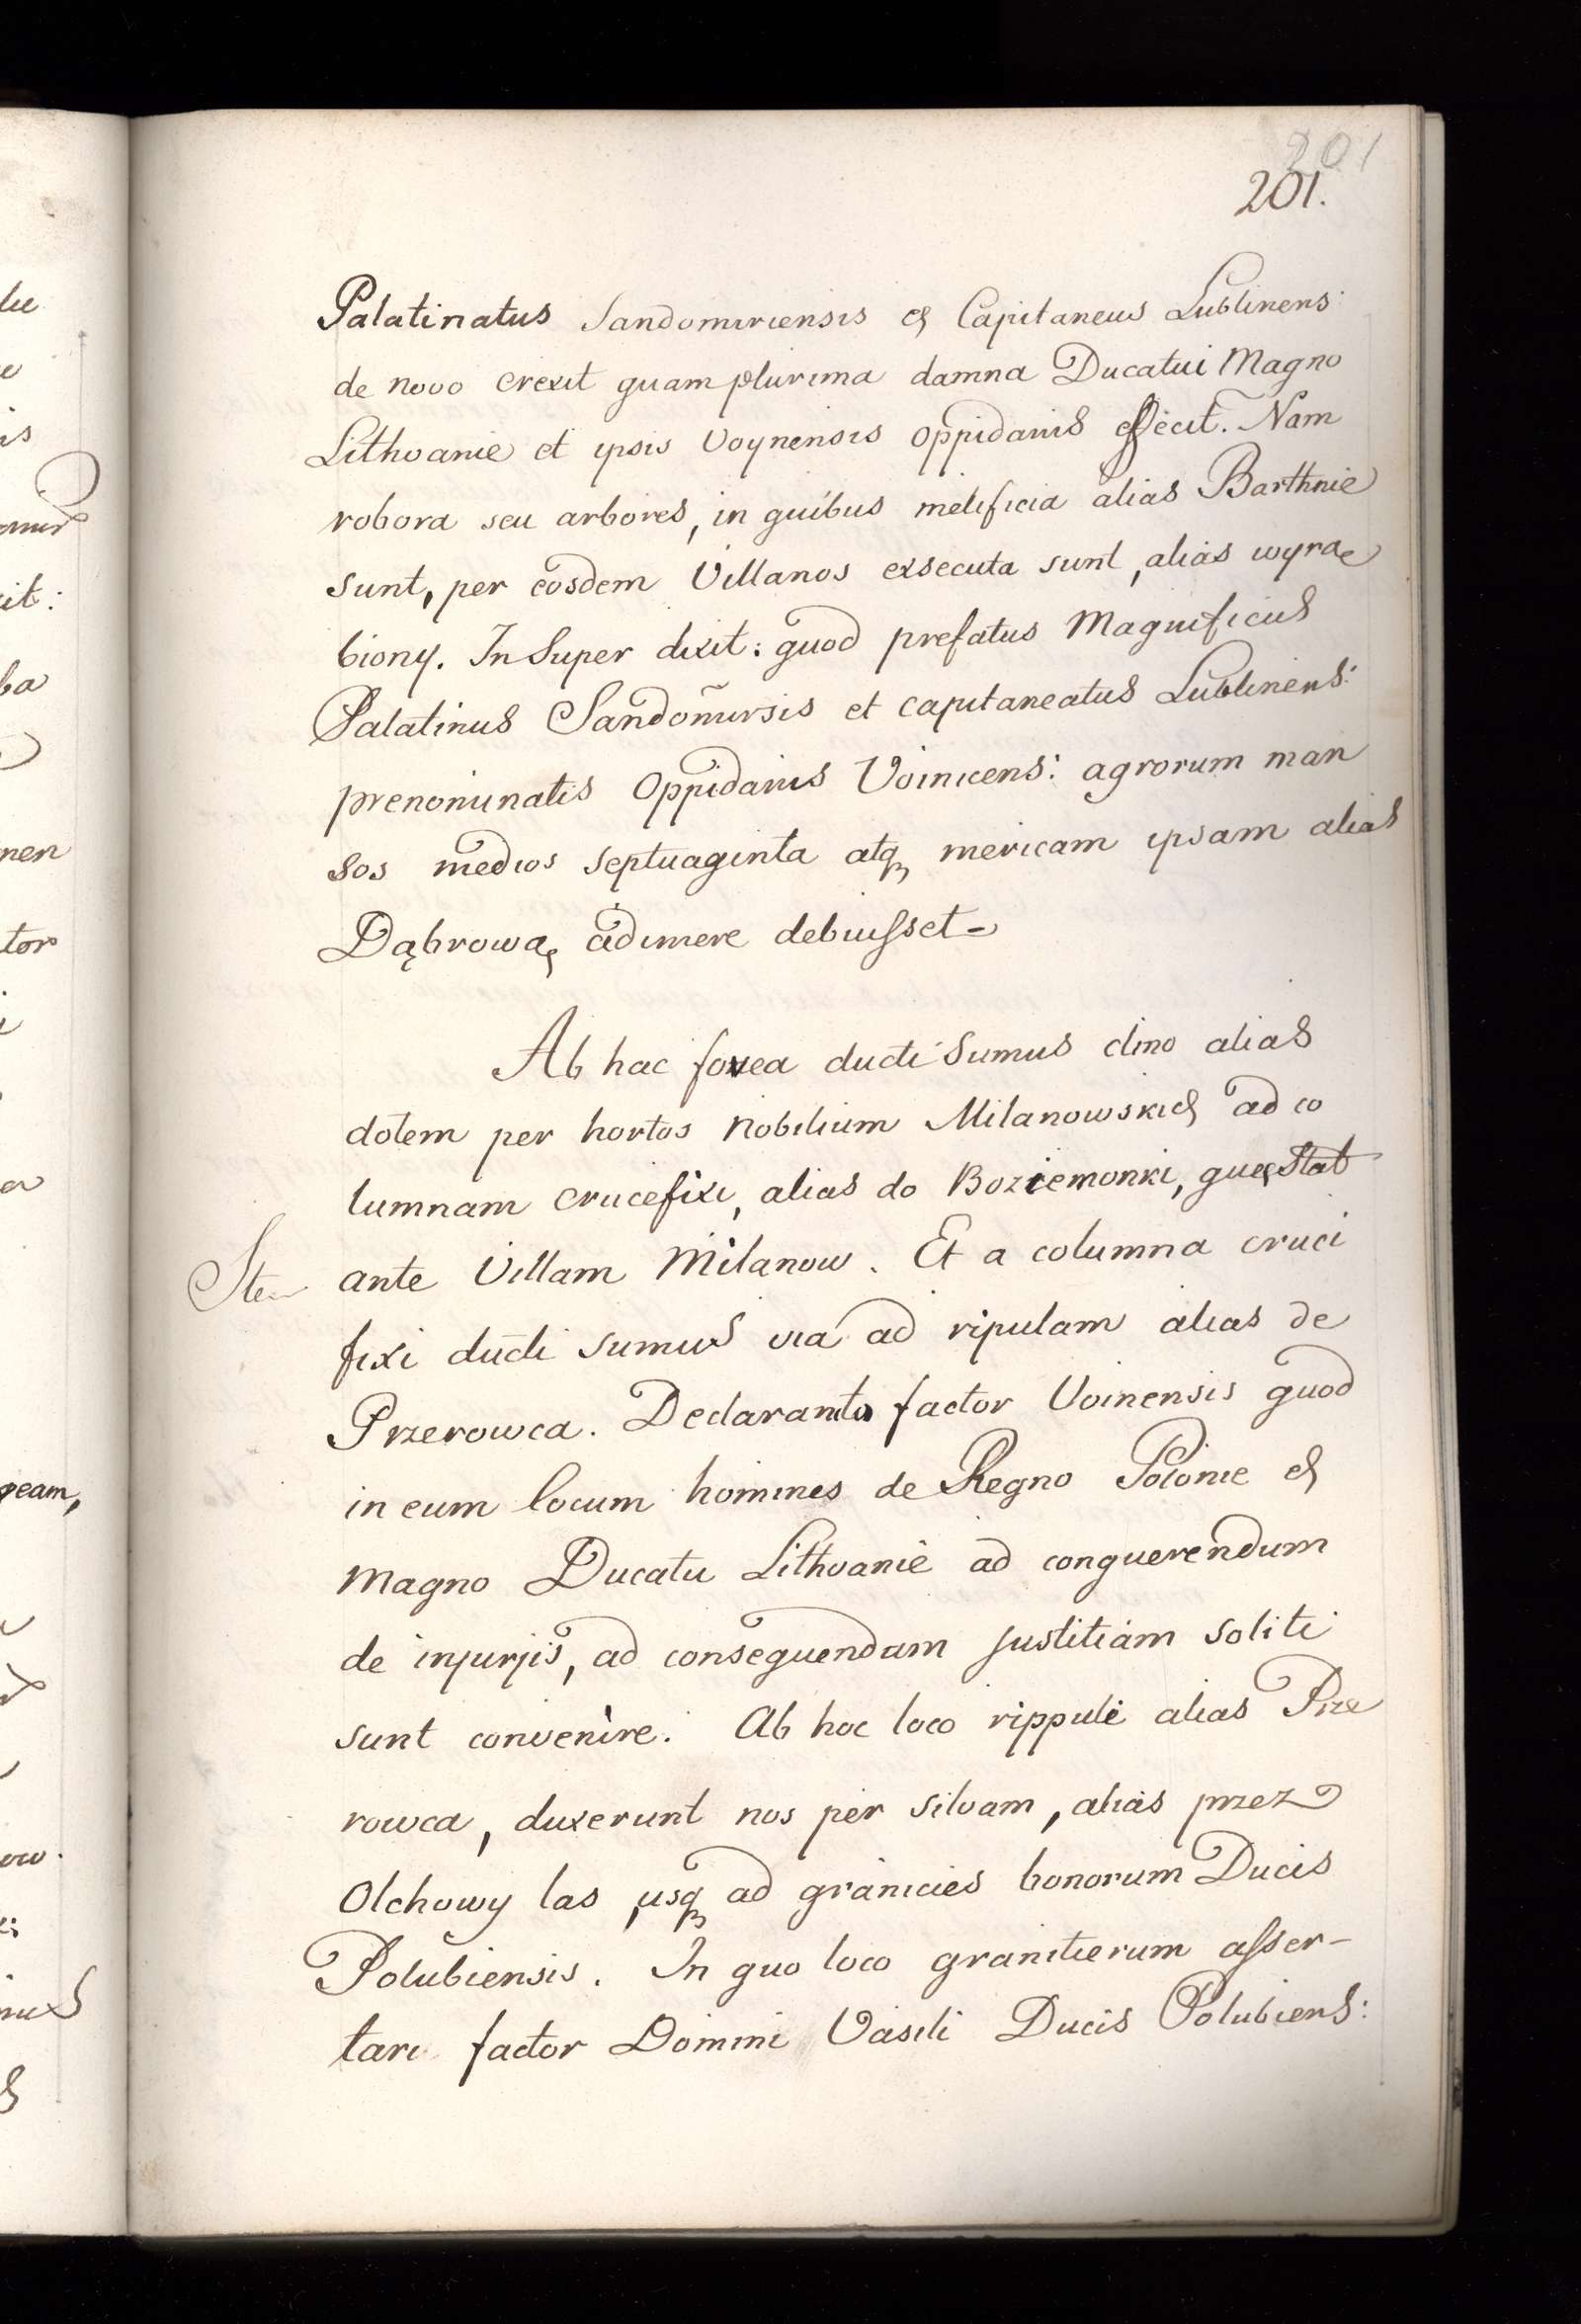 201
201.
Palatinatus Sandomiriensis et Capitaneus Lublinens:
de novo erexit quam plurima damna Ducatui Magno
Lithvanie et ipsis Voynensis oppidanis effecit. Nam
robora seu arbores, in quibus melificia alias Barthnie
sunt, per eosdem Villanos exsecuta sunt, alias wyrą
biony. In Super dixit: quod prefatus Magnificus
Palatinus Sandomirsis et capitaneatus Lublinens:
prenominatis Oppidanis Voinicens: agrorum man
sos medios septuaginta atq mericam ipsam alias
Dąbrową adimere debuisset–
Ab hac fovea ducti Sumus clino alias
dolem per hortos Nobilium Milanowskich ad co
lumnam crucefixi, alias do Boziemonki, quę Stat
Item ante Villam Milanow. Et a columna cruci
fixi ducti sumus via ad ripulam alias de
Przerowca. Declaranto factor Voinensis quod
in eum locum homines de Regno Polonie et
Magno Ducatu Lithvanie ad conquerendum
de injurjis, ad consequendam justitiam soliti
sunt convenire. Ab hoc loco rippuli alias Prze
rowca, duxerunt nos per silvam, alias przez
Olchowy las, usq ad granicies bonorum Ducis
Polubiensis. In quo loco granitierum asser–
tari factor Domini Vasili Ducis Polubiens: